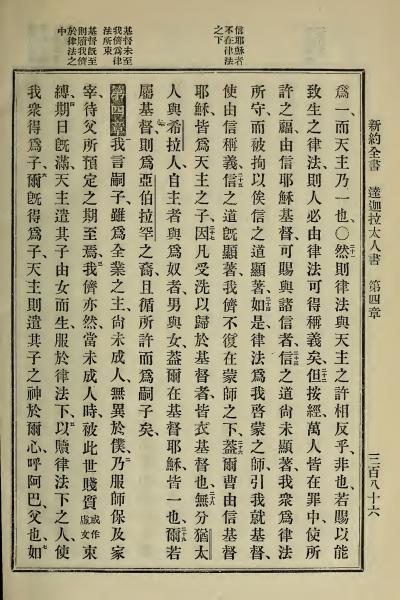 信耶穌者
不在律法
之下
基督未至
我儕為律
法所束
基督既至
則贖我儕
於律法之
中
新約全書 達迦拉太人書 第四章 三百八十六
為一而天主乃一也〇然則律法與天主之許相反乎、非也、若賜以能
致生之律法則人必由律法可得稱義矣但按經萬人皆在罪中使所
許之福由信耶穌基督可賜與諸信者信之道尚未顯著我衆為律法
所守而被拘以俟信之道顯著如是律法為我啓蒙之師引我就基督、
使由信稱義信之道既顯著我儕不復在蒙師之下、蓋爾曹由信基督
耶穌皆為天主之子、因凡受洗以歸於基督者皆衣基督也無分猶太
人與希拉人、自主者與為奴者男與女蓋爾在基督耶穌皆一也爾若
屬基督則為亞伯拉罕之裔且循所許而為嗣子矣、
第四章我言嗣子雖為全業之主尚未成人、無異於僕、乃服師保及家
宰待父所預定之期至焉我儕亦然當未成人時被此世賤質或作虛文束
縛期日既滿天主遣其子由女而生服於律法下、以贖律法下之人、使
我衆得為子爾既得為子天主則遣其子之神於爾心呼阿巴父也如